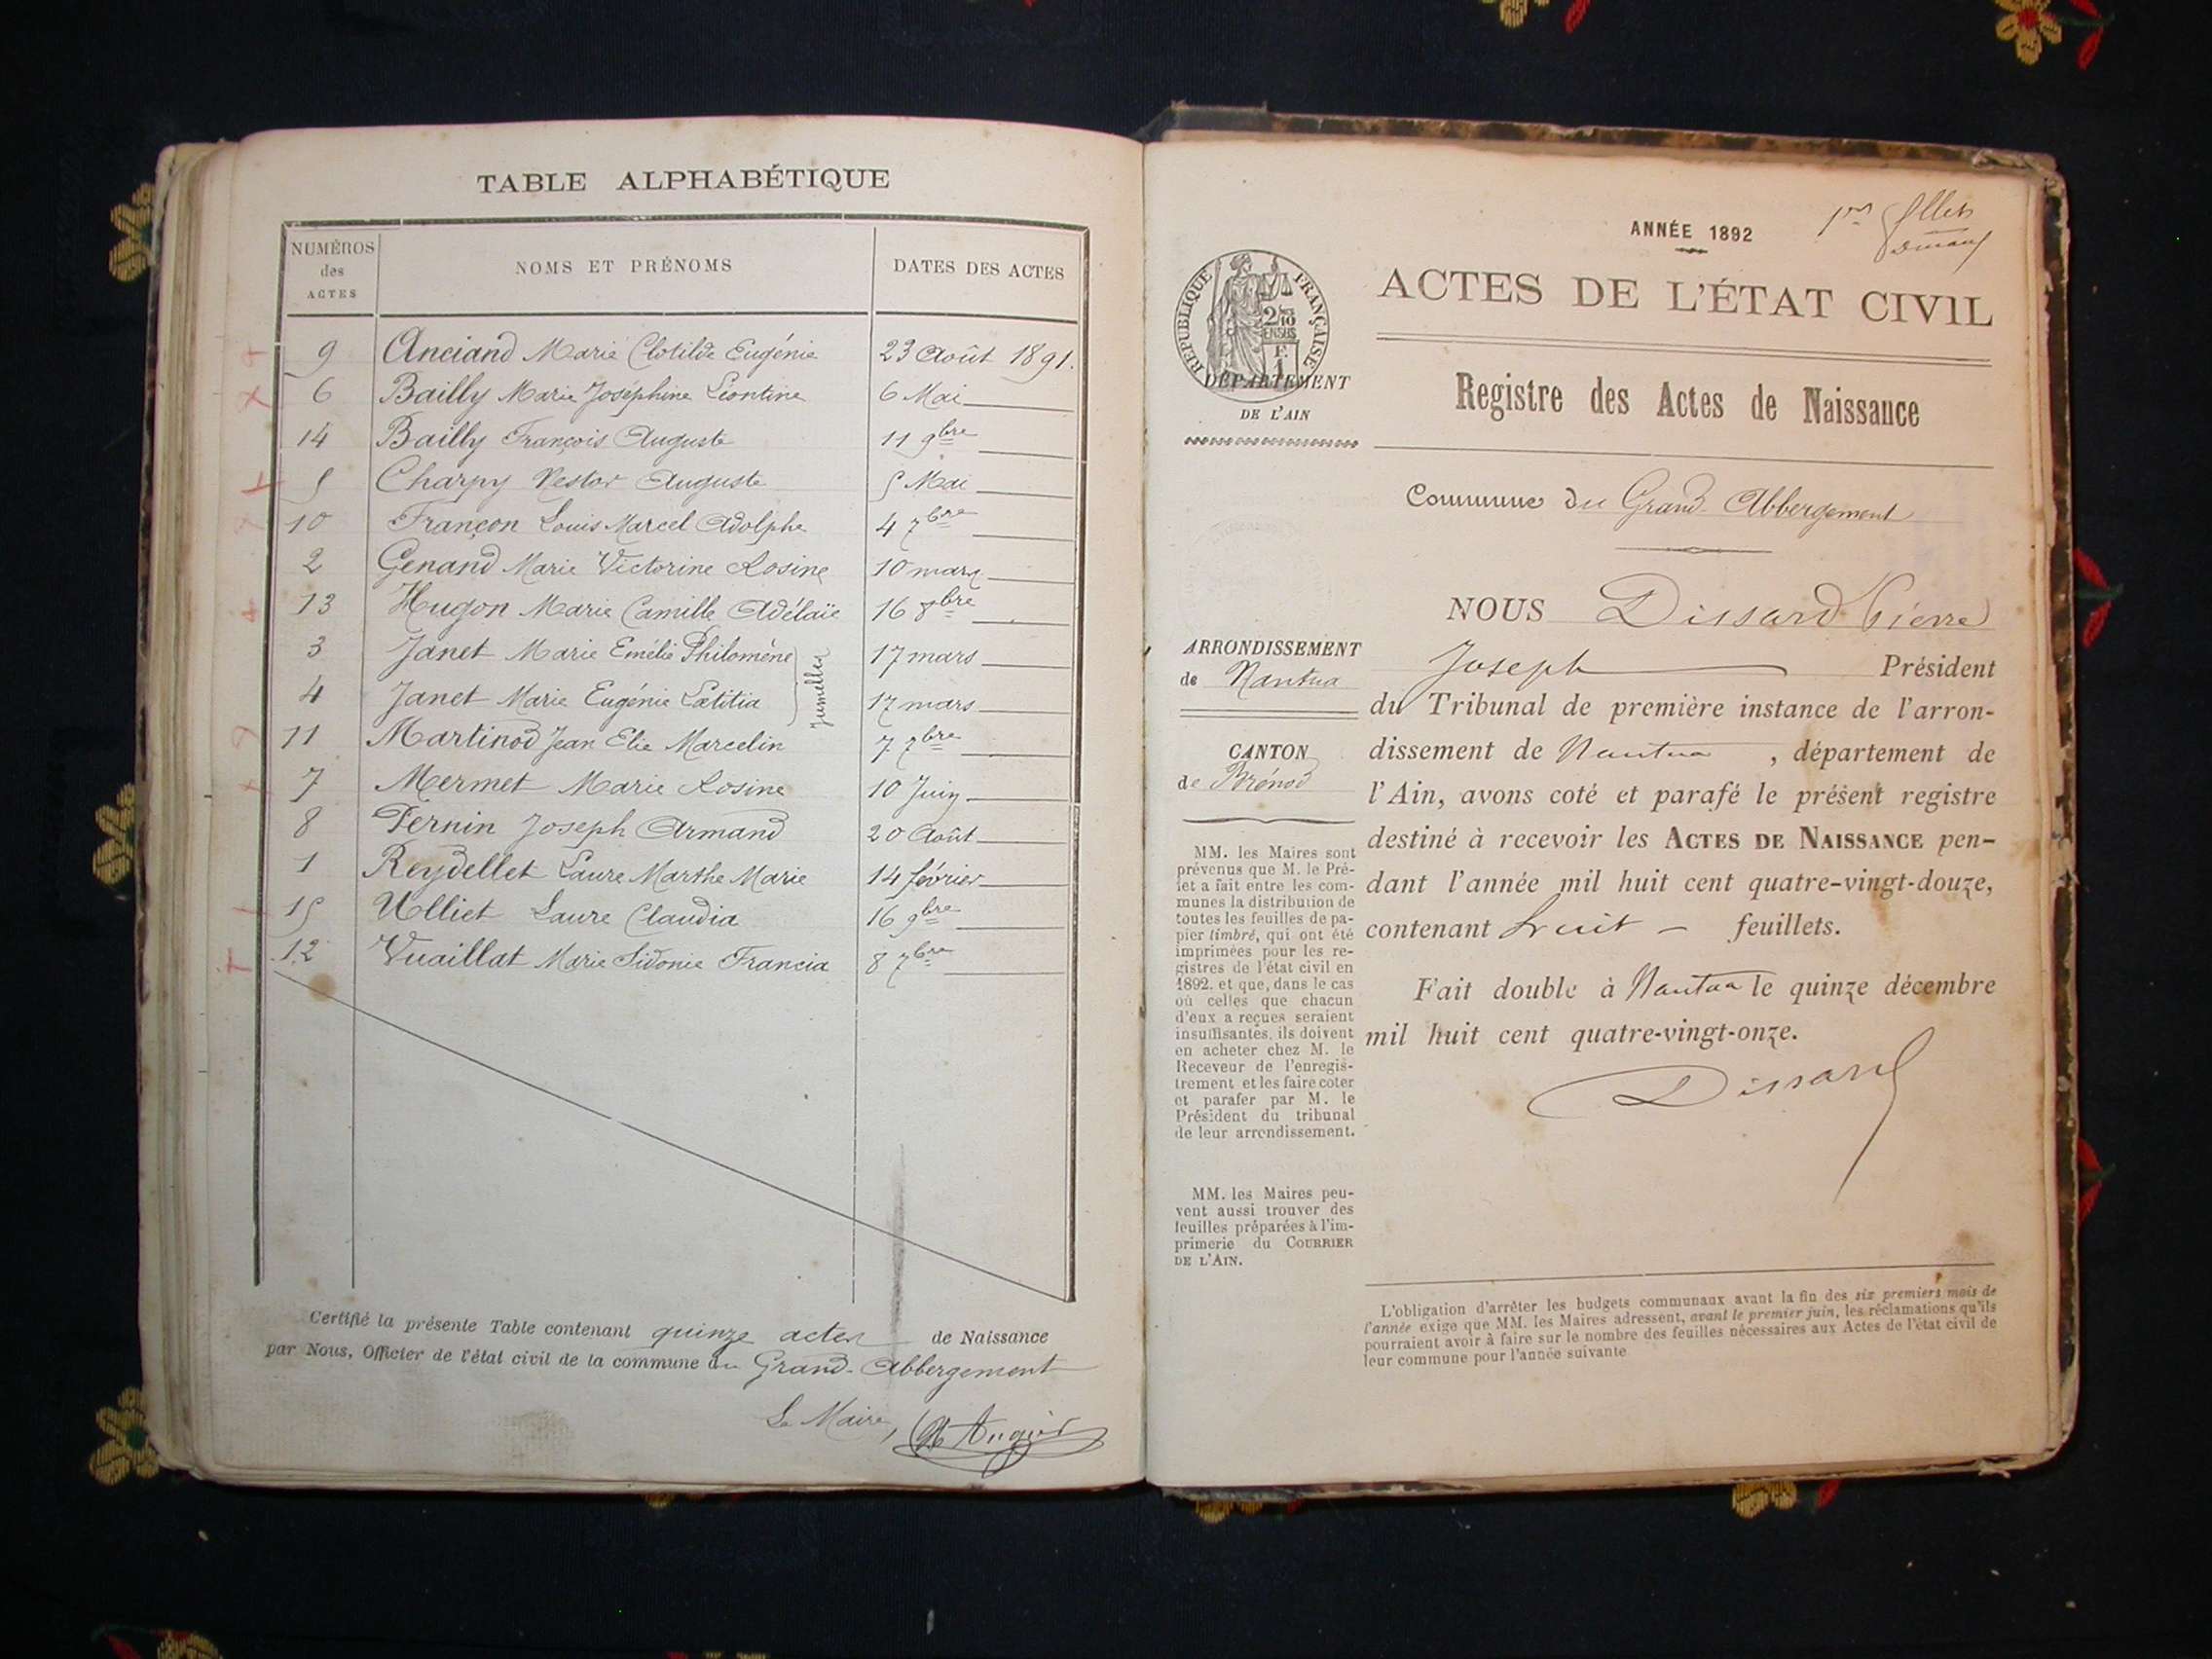 TABLE ALPHABÉTIQUE
NUMÉROS des ACTES NOMS ET PRÉNOMS DATES DES ACTES
9 Anciand Marie Clotilde Eugénie 23 Août 1891.
6 Bailly Marie Joséphine Léontine 6 Mai
14 Bailly François Auguste 11 9bre
5 Charpy Nestor Auguste 5 Mai
10 Françon Louis Marcel Adolphe 4 7bre
2 Genand Marie Victorine Rosine 10 mars
13 Hugon Marie Camille Adélaïe 16 8bre
3 Janet Marie Emélie Philomène 17 mars
4 Janet Marie Eugénie Lætitia 17 mars
Jumelles
11 Martinod Jean Elie Marcelin 7 7bre
7 Mermet Marie Rosine 10 Juin
8 Pernin Joseph Armand 20 Août
1 Reydellet Laure Marthe Marie 14 février
15 Ulliet Laure Claudia 16 9bre
12 Vuaillat Marie Sidonie Francia 8 7bre
Certifié la présente Table contenant quinze actes de Naissance
par Nous, Officier de l'état civil de la commune du Grand-Abbergement
Le Maire,
ANNÉE 1892
1er
ACTES DE L'ÉTAT CIVIL
RÉPUBLIQUE FRANÇAISE
2/10 EN SUS
F. 1
DÉPARTEMENT
DE L'AIN
Registre des Actes de Naissance
Commune du Grand Abbergement
NOUS Dissard Pierre
Joseph Président
du Tribunal de première instance de l'arron-
dissement de Nantua, département de
l'Ain, avons coté et parafé le présent registre
destiné à recevoir les ACTES DE NAISSANCE pen-
dant l'année mil huit cent quatre-vingt-douze,
contenant huit feuillets.
Fait double à Nantua le quinze décembre
mil huit cent quatre-vingt-onze.
Dissard
ARRONDISSEMENT
de Nantua
CANTON
de Brénod
MM. les Maires sont
prévenus que M. le Pré-
fet a fait entre les com-
munes la distribution de
toutes les feuilles de pa-
pier timbré, qui ont été
imprimées pour les re-
gistres de l'état civil en
1892. et que, dans le cas
où celles que chacun
d'eux a reçues seraient
insuffisantes, ils doivent
en acheter chez M. le
Receveur de l'enregis-
trement et les faire coter
et parafer par M. le
Président du tribunal
de leur arrondissement.
MM. les Maires peu-
vent aussi trouver des
feuilles préparées à l'im-
primerie du COURRIER
DE L'AIN.
L'obligation d'arrêter les budgets communaux avant la fin des six premiers mois de
l'année exige que MM. les Maires adressent, avant le premier juin, les réclamations qu'ils
pourraient avoir à faire sur le nombre des feuilles nécessaires aux Actes de l'état civil de
leur commune pour l'année suivante